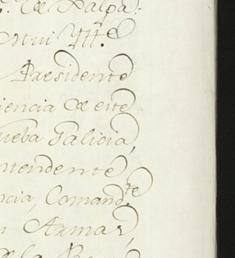 de Xalpa:
Mui Ytt.e
Presidente
iencia de este
ueba Galicia,
ntendente
ncia, Comand.te
n Armas,